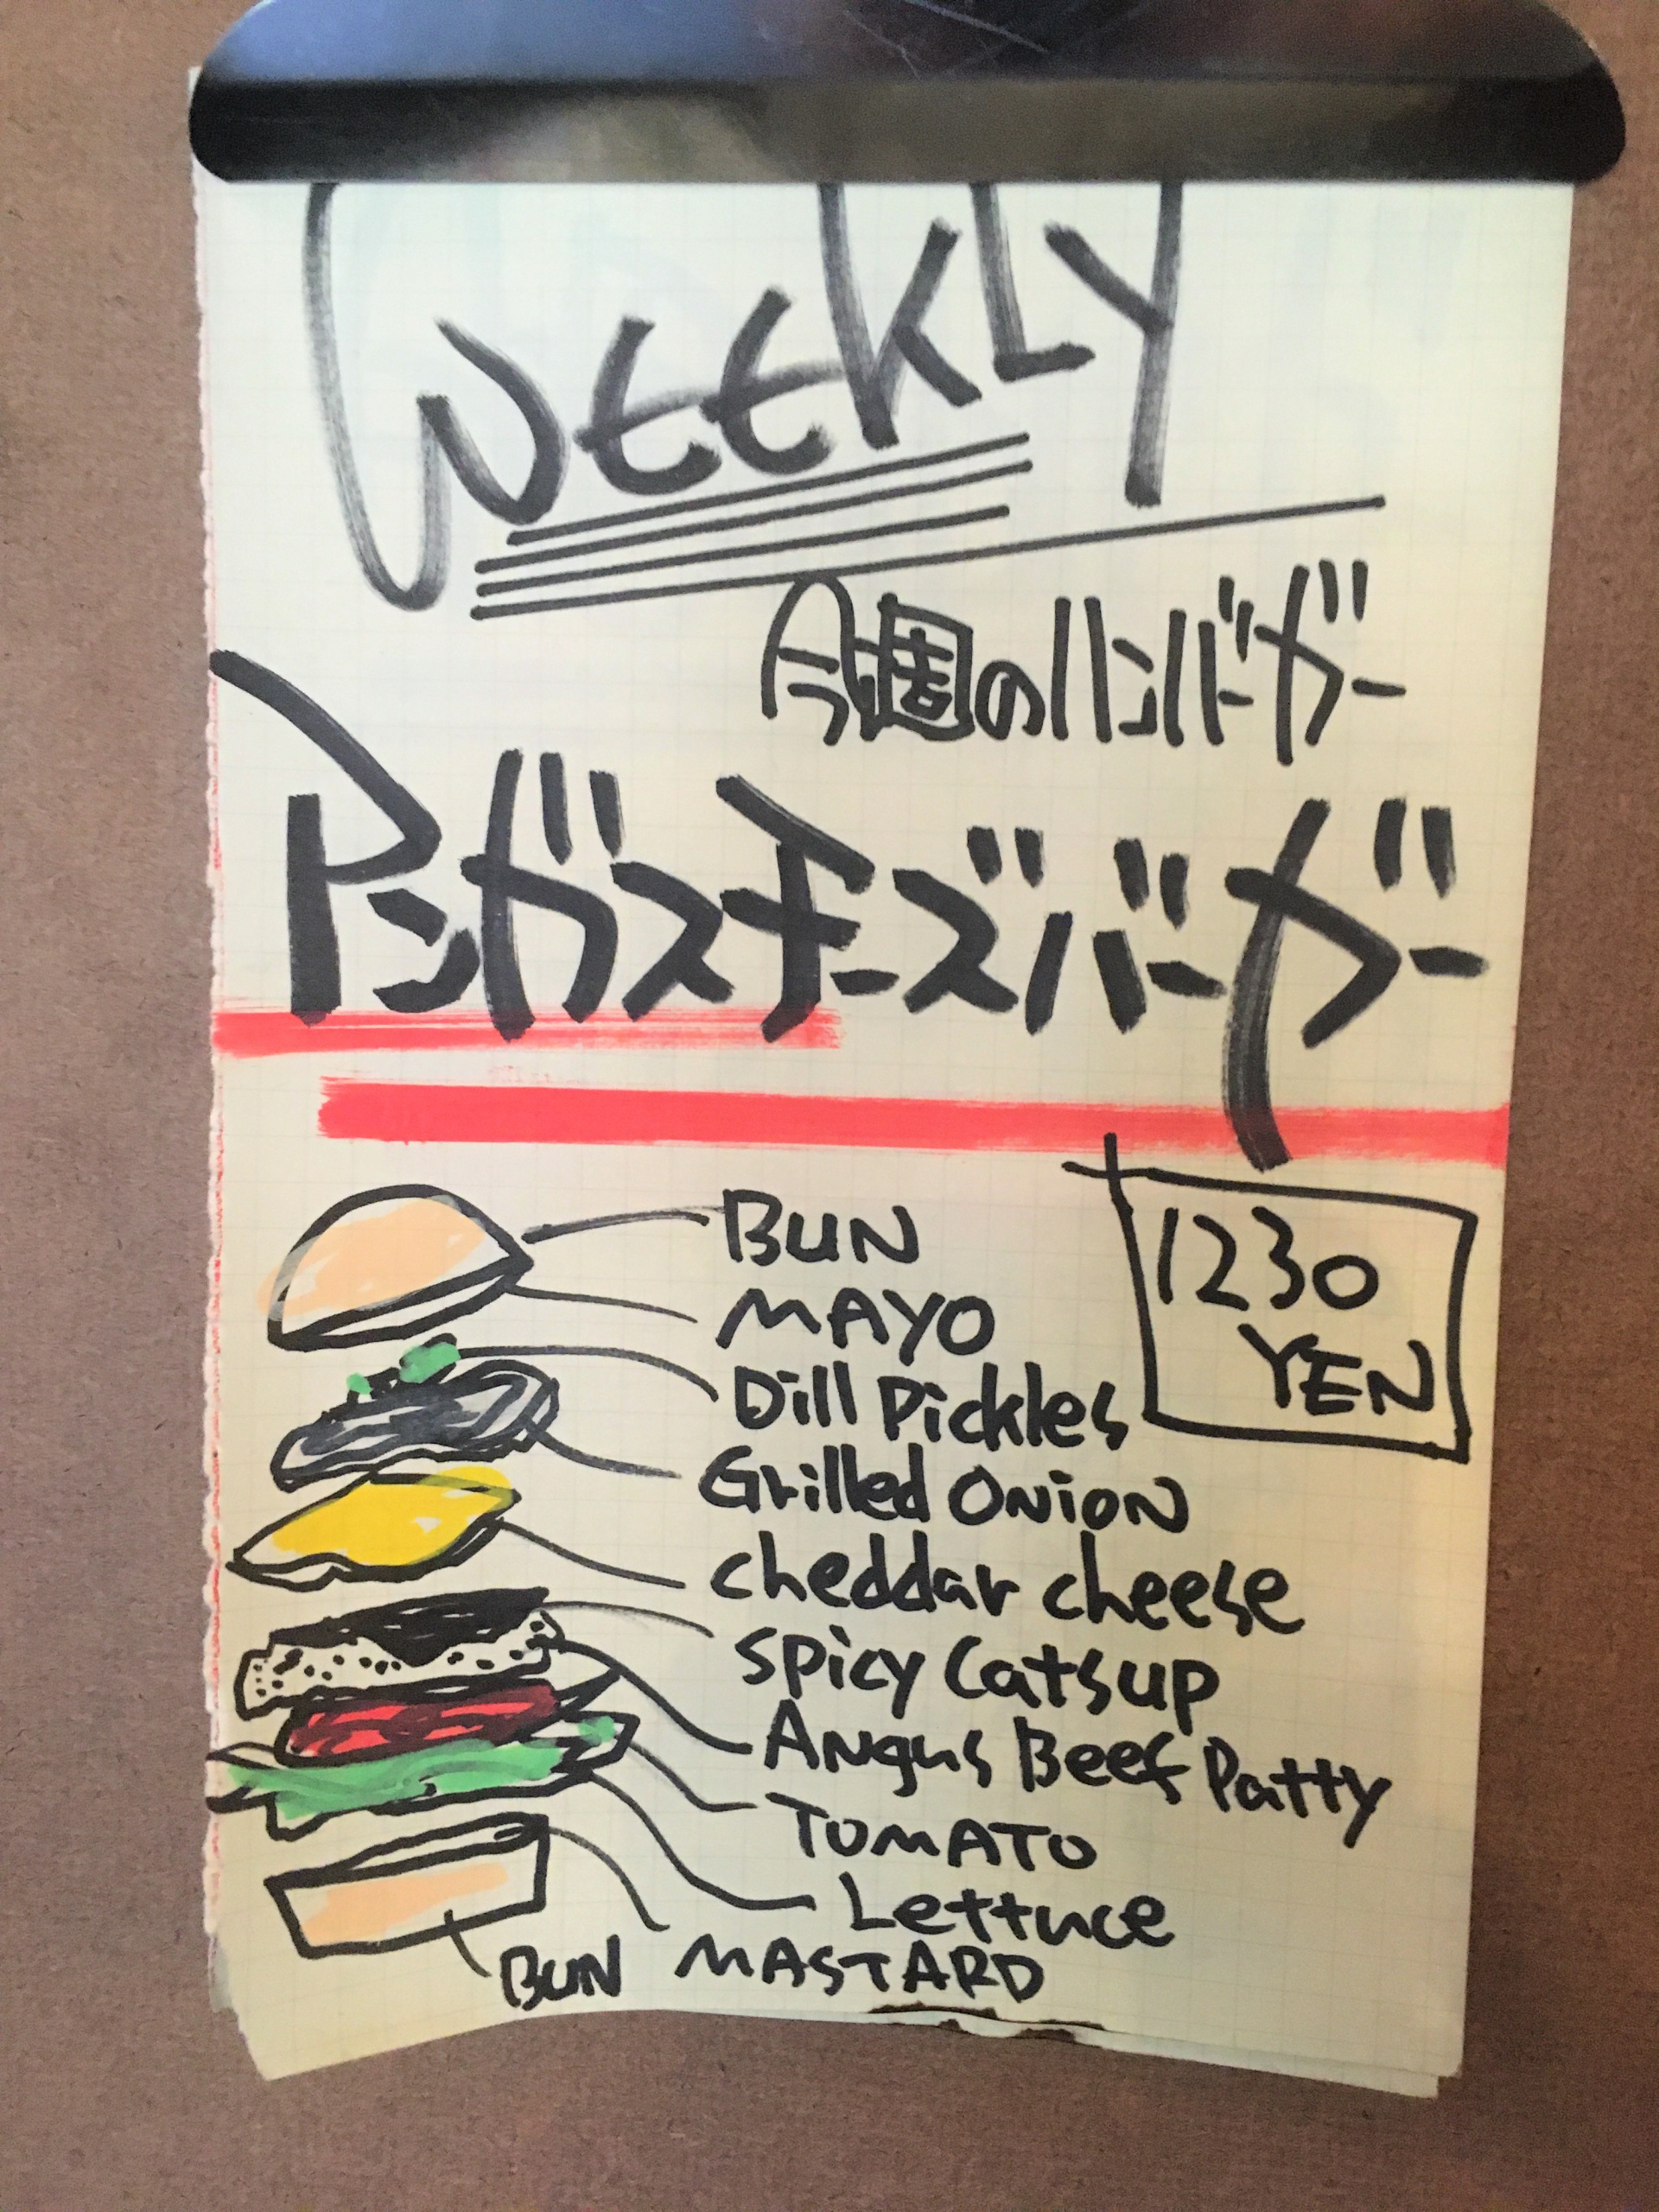 WEEKLY
今週のハンバーガー
アンガスチーズバーガー
1230
YEN
BUN
MAYO
Dill Pickles
Grilled ONiON
cheddar cheese
spicy Catsup
Angus Beef Patty
TOMATO
Lettuce
MASTARD
BUN